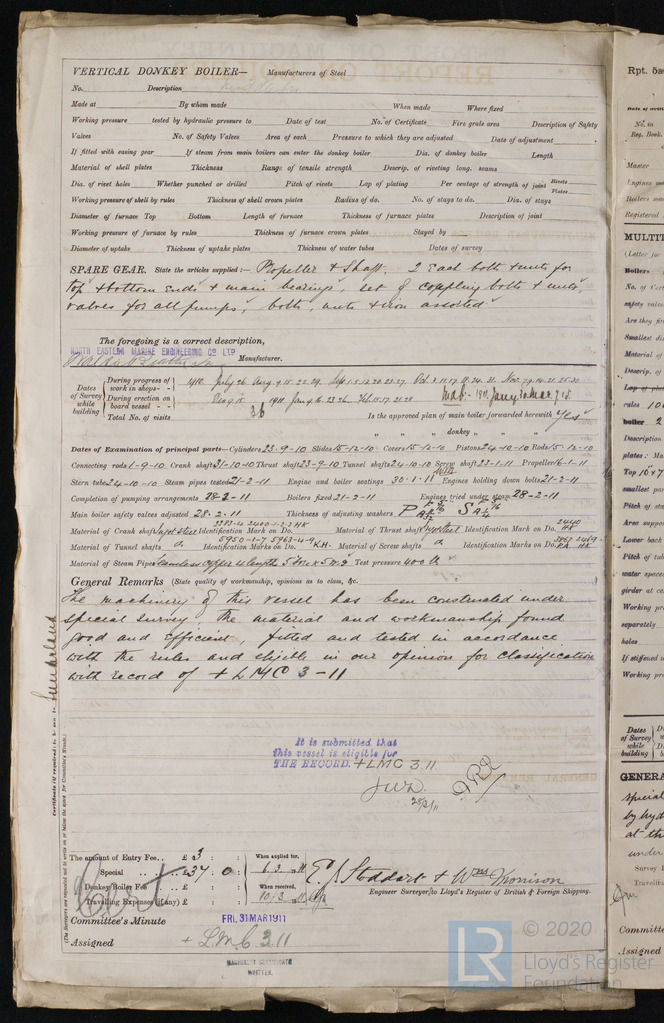 VERTICAL DONKEY BOILER— Manufacturers of Steel
No. Description
Made at By whom made When made Where fixed
Working pressure tested by hydraulic pressure to Date of test No. of Certificate Fire grate area Description of Safety
Valves No. of Safety Valves Area of each Pressure to which they are adjusted Date of adjustment
If fitted with easing gear If steam from main boilers can enter the donkey boiler Dia. of donkey boiler Length
Material of shell plates Thickness Range of tensile strength Descrip. of riveting long. seams
Dia. of rivet holes Whether punched or drilled Pitch of rivets Lap of plating Per centage of strength of joint Rivets Plates
Working pressure of shell by rules Thickness of shell crown plates Radius of do. No. of stays to do. Dia. of stays
Diameter of furnace Top Bottom Length of furnace Thickness of furnace plates Description of joint
Working pressure of furnace by rules Thickness of furnace crown plates Stayed by
Diameter of uptake Thickness of uptake plates Thickness of water tubes Dates of survey
SPARE GEAR. State the articles supplied:— Propeller & Shaft. 2 each bolts & nuts for
top & bottom ends & main bearings, set of coupling bolts & nuts,
valves for all pumps, bolts, nuts & iron assorted
The foregoing is a correct description,
NORTH EASTERN MARINE ENGINEERING CO LTD
Manufacturer.
Dates of Survey while building
During progress of work in shops - - 1910. July 26 Aug. 9. 15. 22. 29. Sep. 1. 5. 13. 20. 23. 27. Oct. 3. 11. 17. 19. 24. 31. Nov. 7. 9. 14. 21. 25. 30
During erection on board vessel - - - Dec. 9. 15. 1911 Jan. 9. 16. 23. 26. Feb. 15. 17. 21. 28 Mab:- 1911 Jany 30 Mar 7. 15.
Total No. of visits 36 Is the approved plan of main boiler forwarded herewith Yes
" " " donkey " " "
Dates of Examination of principal parts—Cylinders 23-9-10 Slides 15-12-10 Covers 15-12-10 Pistons 24-10-10 Rods 15-12-10
Connecting rods 1-9-10 Crank shaft 31-10-10 Thrust shaft 23-9-10 Tunnel shafts 24-10-10 Screw shaft 23-1-11 Propeller 16-1-11
Stern tube 24-10-10 Steam pipes tested 21-2-11 Engine and boiler seatings 30-1-11 Engines holding down bolts 21-2-11
Completion of pumping arrangements 28-2-11 Boilers fixed 21-2-11 Engines tried under steam 28-2-11
Main boiler safety valves adjusted 28-2-11 Thickness of adjusting washers
Material of Crank shaft Ingot steel Identification Mark on Do. 3283-4 2400-1-2-3 HK Material of Thrust shaft Ingot steel Identification Mark on Do. 2440 HK
Material of Tunnel shafts " Do. Identification Marks on Do. 5950-1-7 5963-4-9 K.H. Material of Screw shafts Do. Identification Marks on Do.
Material of Steam Pipes Seamless copper Test pressure 400 lb
General Remarks (State quality of workmanship, opinions as to class, &c.
The machinery of this vessel has been constructed under
special survey, the material and workmanship found
good and efficient, fitted and tested in accordance
with the rules and eligible in our opinion for classification
with record of + LMC 3-11
Sunderland
Certificate (if required) to be sent to
(The Surveyors are requested not to write on or below the space for Committee's Minute.)
It is submitted that
this vessel is eligible for
THE RECORD. + LMC 3.11
28/3/11
The amount of Entry Fee.. £ 3 : : When applied for,
Special .. .. £ 37 : 0 : 6.3.1911
Donkey Boiler Fee .. .. £ : : When received,
Travelling Expenses (if any) £ : : 10/3/1911
E. J. Stoddart & Wm Morrison
Engineer Surveyor to Lloyd's Register of British & Foreign Shipping.
Committee's Minute FRI. 31 MAR 1911
Assigned + L.M.C. 3.11
MACHINERY CERTIFICATE
WRITTEN.
© 2020
LR
Lloyd's Register
Foundation
Rpt. 5a
No. in
Reg. Book.
Master
Engines
Boilers
Registered
MULTIT
(Letter for
Boilers
No. of Cert
safety valve
Are they fit
Smallest dis
Material of
Descrip. of
Lap of plat
rules
boiler
Description
plates
Top
smallest par
Pitch of sta
Area suppor
Lower back
Pitch of tub
water space
girder at ce
Working pre
separately
holes
If stiffened
Working pre
Dates of Survey while building
GENERA
special
by hyd
at th
under
Survey
Travelling
Committe
Assigned